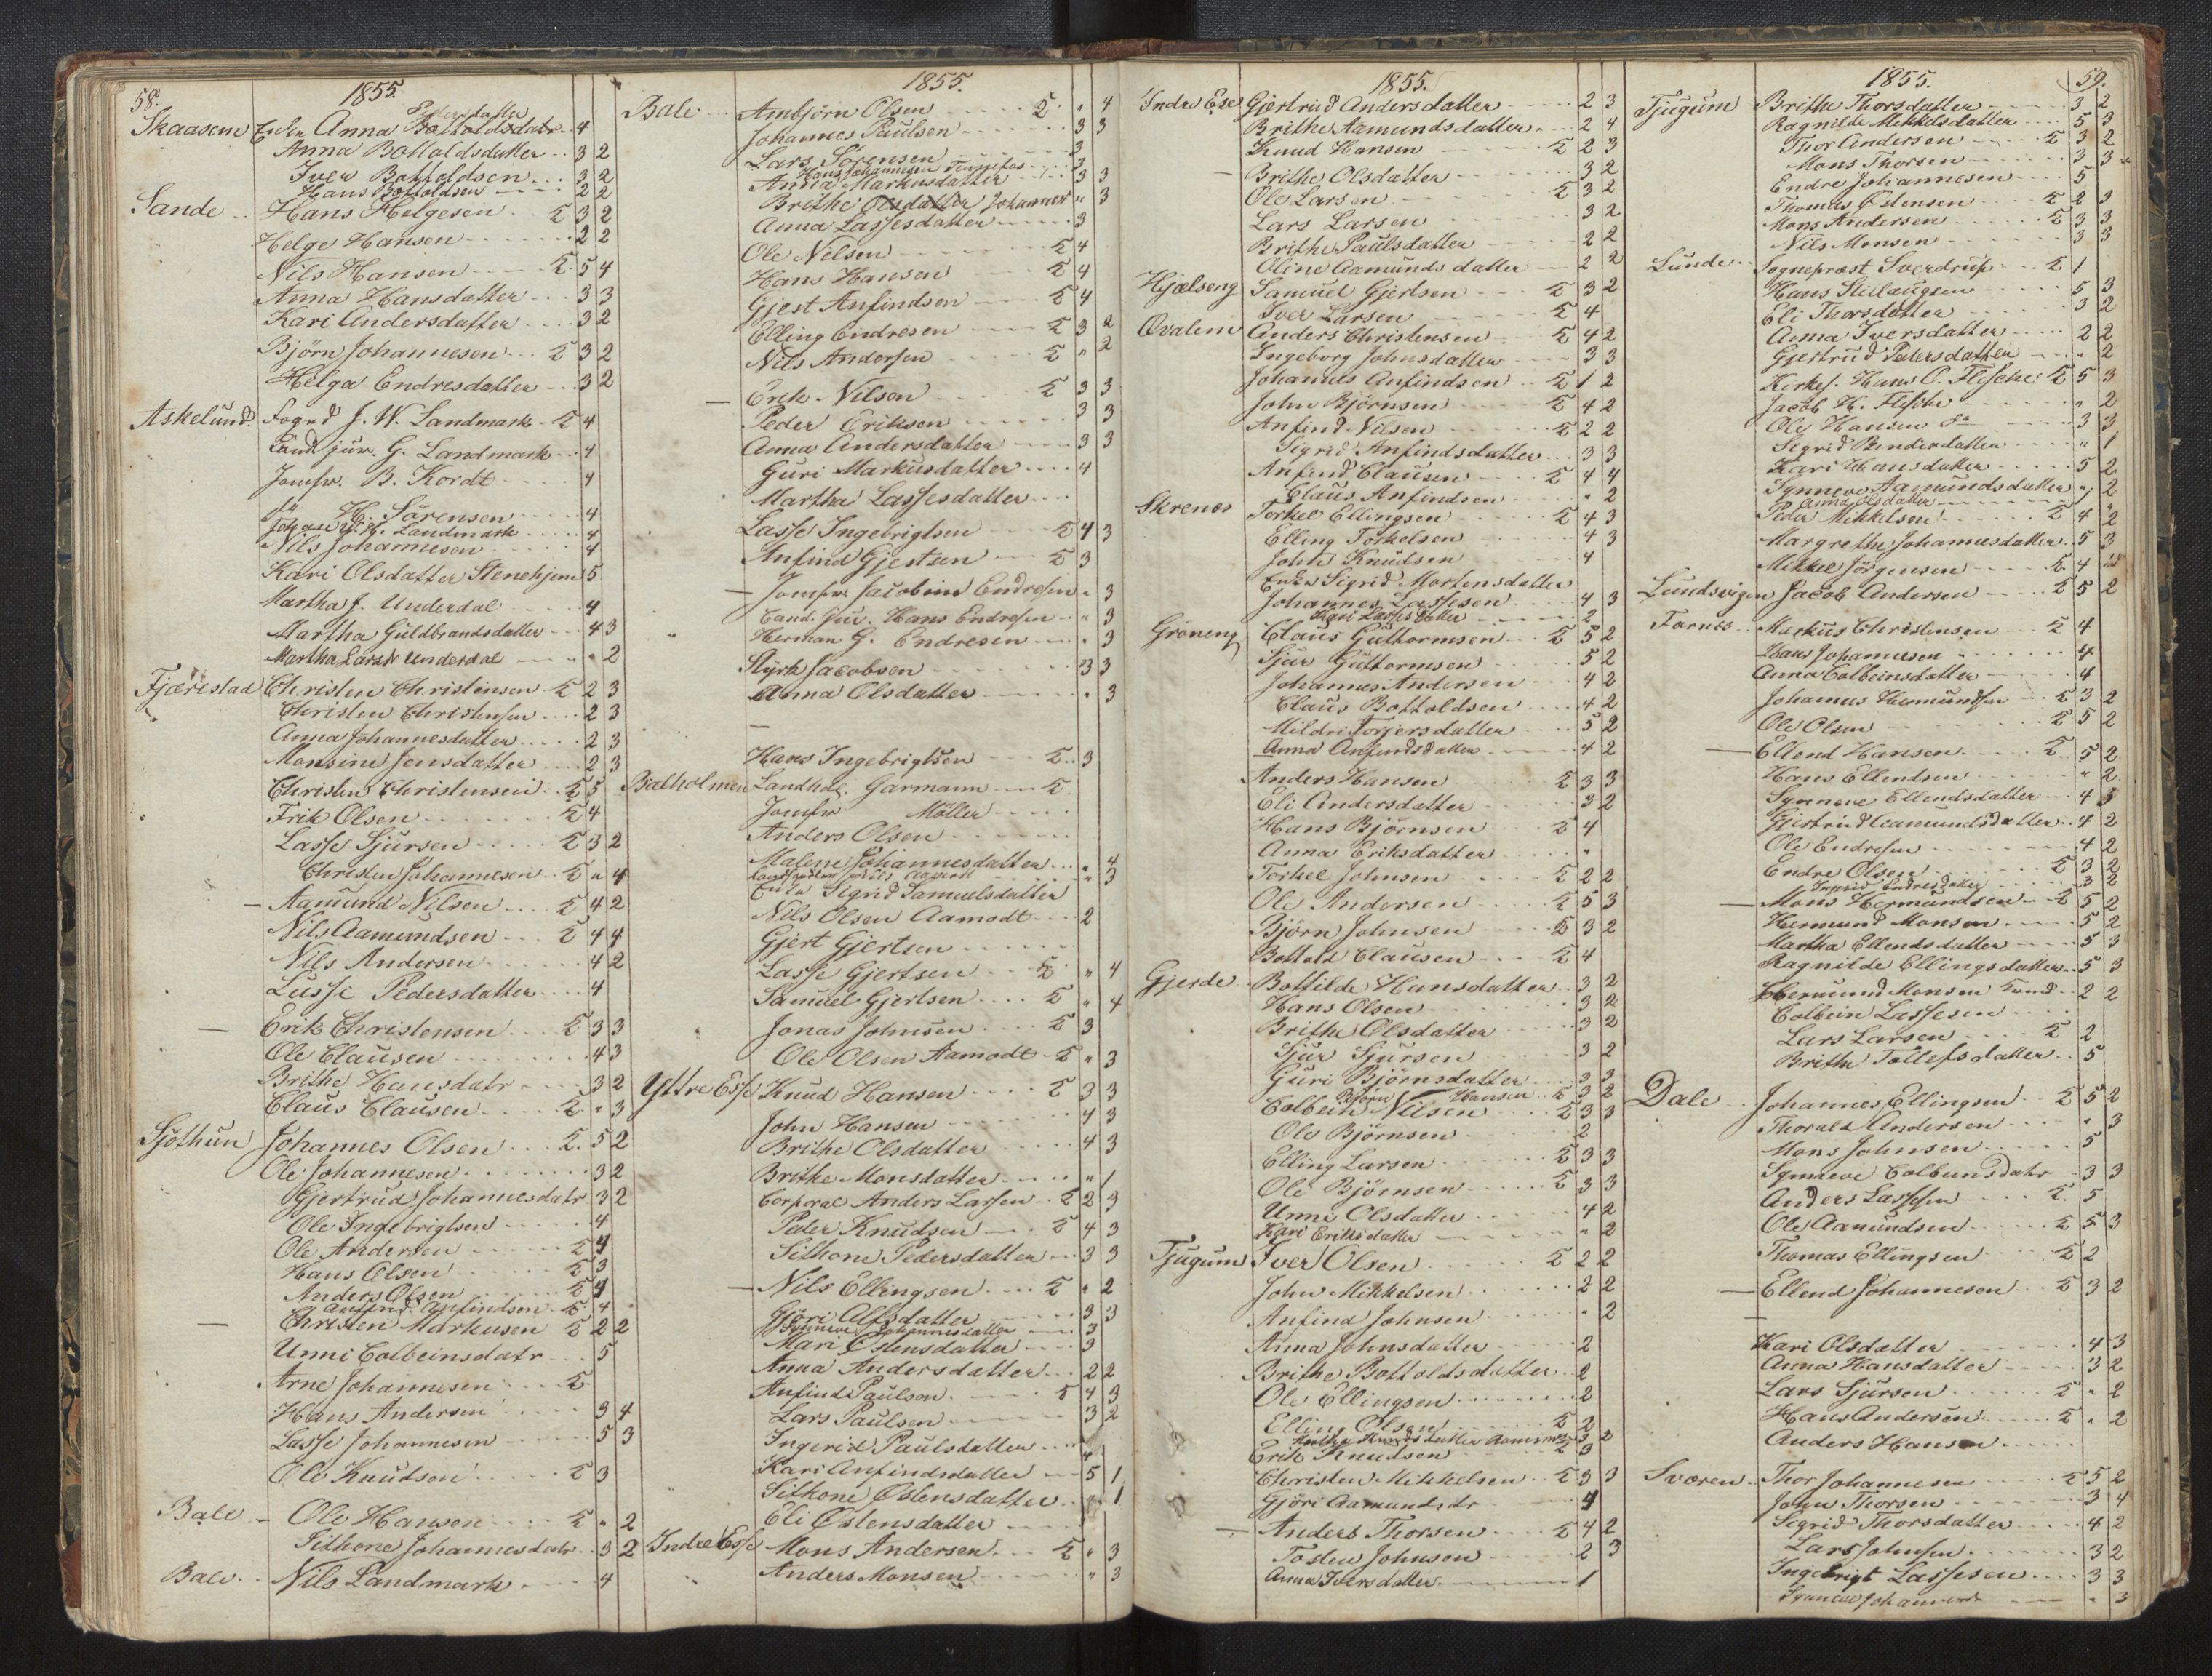 58.
1855.
Pedersdatter
Skaasem Enken Anna Bottoldsdatr 4
Anna Bottoldsdatter 3 2
Iver Bottoldsen 3 2
Hans Bottoldsen 2 2
Sande Hans Helgesen 3 2
Helge Hansen 2 2
Nils Hansen 5 4
Anna Hansdatter 3 3
Kari Andersdatter 3 2
Bjørn Johannesen 3 2
Helga Endresdatter 3 2
Askelund Fogd J. W. Landmark 4
Cand. jur. G. Landmark 4
Jomfr. B. Kordt 4
H. Sörensen 4
Landmark 4
Nils Johannesen 4
Kari Olsdatter Stenehjem 5
Martha J. Underdal 4
Martha Guldbrandsdatter 4 3
Martha Larsdr Underdal " 2
Fjærestad Christen Christensen 2 3
Christen Christensen 2 3
Anna Johannesdatter 2 3
Monsine Jensdatter 2 3
Christen Christensen 5
Erik Olsen 4
Lasse Sjursen 3 2
Christen Johannesen " 4
— Aamund Nilsen 4 2
Nils Aamundsen 4 4
Nils Andersen 4 2
Lussi Pedersdatter 4
— Erik Christensen 3 3
Ole Clausen 4 3
Brithe Hansdatr 3 2
Claus Clausen " 3
Sjöthun Johannes Olsen 5 2
Ole Johannesen 3 2
Gjertrud Johannesdatr 3 2
Ole Ingebrigtsen 4
Ole Andersen 4
Hans Olsen 3
Anders Olsen 4
Anfind Anfindsen 4
— Christen Markusen 2 2
Unni Colbeinsdatr 5
Arne Johannesen
Hans Andersen 3 4
Lasse Johannesen 5 3
Ole Knudsen 3
Bale — Ole Hansen " 2
Sithone Johannesdatr 3 2
Bale Nils Landmark 4
1855.
Bale Ambjörn Olsen " 4
Johannes Paulsen 3 3
Lars Sörensen 3
Hans Johannesen 3
Anna Markusdatter 3 3
Brithe Olsdatter " 3
Anna Lassesdatter 3
Ole Nilsen 4
Hans Hansen 4
Gjest Anfindsen 4
Elling Endresen 3 2
Nils Andersen " 2
— Erik Nilsen 3 3
Peder Eriksen 3 3
Anna Andersdatter 3 3
Guri Markusdatter 4
Martha Lassesdatter
Lasse Ingebrigtsen 4 3
Anfind Gjertsen 3
— Jomfru Jacobine Endresen " 3
Cand. jur. Hans Endresen " 3
" Herman G. Endresen " 3
Styrk Jacobsen 3 3
Anna Olsdatter " 3
—
Hans Ingebrigtsen 3
Balholmen Landhdl. Garmann
Jomfru Möller
Anders Olsen
Malene Johannesdatter " 4
Landhandler Nils Aamodt " 3
Enke Sigrid Samuelsdatter
Nils Olsen Aamodt 2
Gjert Gjertsen
Lasse Gjertsen " 4
Samuel Gjertsen " 4
Jonas Johnsen 3
Ole Olsen Aamodt " 3
Yttre Esse Knud Hansen 3 3
John Hansen 4 3
Brithe Olsdatter 4 3
Brithe Monsdatter " 1
Corporal Anders Larsen 2 3
Peter Knudsen 4 3
Sithone Pedersdatter 3 3
— Nils Ellingsen " 2
Gjöri Alfsdatter 3 3
Synneve Johannesdatter 3
Mari Østensdatter 3
Anna Andersdatter 2 2
Anfind Paulson 4 3
Lars Paulsen 3 2
Ingerid Paulsdatter
Kari Anfindsdatter 5 1
Sithone Østensdatter " 1
Eli Østensdatter
Indre Esse Mons Andersen " 3
Anders Monsen " 3
1855.
Indre Ese Gjertrud Andersdatter 2 3
Brithe Aamundsdatter 2 4
Knud Hansen 2 3
— Brithe Olsdatter 3 2
Ole Larsen 3 2
Lars Larsen 3 2
Brithe Paulsdatter 2 2
Oline Aamundsdatter 2 2
Hjelseng Samuel Gjertsen 3 2
Iver Larsen 4
Qvalem Anders Christensen 4 2
Ingeborg Johnsdatter 3 3
Johannes Anfindsen 1 2
John Björnsen 4 2
Anfind Nilsen 2 2
Sigrid Anfindsdatter 3 3
Anfind Clausen 4 4
Claus Anfindsen " 2
Skrenes Torkel Ellingsen 4 3
Elling Torkelsen 4 3
John Knudsen 4
Enken Sigrid Mortensdatter
Johannes Lassesen 4 3
Kari Lassesdatter 2
Gröneng Claus Guttormsen 5 2
Sjur Guttormsen 5 2
Johannes Andersen 4 2
Claus Bottoldsen 4 2
Mildri Torjersdatter 5 2
Anna Anfindsdatter 4 2
Anders Hansen 3 3
Eli Andersdatter 3 2
Hans Björnsen 4
Anna Eriksdatter "
Torkel Johnsen 2 2
Ole Andersen 5 3
Björn Johnsen 3 2
Bottold Clausen 4
Gjerde Bottilde Hansdatter 3 2
Hans Olsen 3 2
Brithe Olsdatter 3 2
Sjur Sjursen 3 2
Guri Björnsdatter 3 3
Björn Hansen 3 2
Colbein Nilsen 3 3
Ole Björnsen 2
Elling Larsen 3 3
Ole Björnsen 3 3
Unni Olsdatter 4 2
Kari Eriksdatter " 2
Tjugum Iver Olsen 2 2
John Mikkelsen 2 2
Anfind Johnsen " 2
Anna Johnsdatter 2
Brithe Bottoldsdatter 2
Ole Ellingsen 2
Elling Olsen 2
Erik Knudsen 3
Christen Mikkelsen 3 3
Gjöri Aamundsdr 4
— Anders Thorsen 4 2
Tosten Johnsen 2 3
Anna Iversdatter 1
1855.
59.
Tjugum Brithe Thorsdatter 3 2
Ragnilde Mikkelsdatter 5 3
Thor Andersen 3 2
Mons Thorsen 3 3
Endre Johannesen 5
Thomas Østensen 2 3
Mons Andersen 3 3
Nils Monsen 3 3
Lunde Sogneprast Sverdrup 1
Hans Stillaugsen 5 3
Eli Thorsdatter 3 2
Anna Iversdatter 2 2
Gjertrud Pedersdatter " 2
Kirkes. Hans O. Flesche 5 3
Jacob H. Flesche " 2
Ole Hansen do 3 3
Sigrid Bendixdatter " 1
Kari Hansdatter 5 2
Synneve Aamundsdatter " 2
Anna Olsdatter
Peder Mikkelsen 4 2
Margrethe Johannesdatter 5 3
Mikkel Jörgensen 4
Lundsvigen Jacob Andersen 5 2
Farnes Markus Christensen 4
Hans Johannesen 4
Anna Colbeinsdatter 4
Johannes Hermundsen 3 2
Ole Olsen 5 2
— Ellend Hansen 5 2
Hans Ellendsen " 2
Synneve Ellendsdatter 4 3
Gjertrud Aamundsdatter 4 2
Ole Endresen 4 2
Endre Olsen 3 2
Ingerid Endresdatter 3 2
— Mons Hermundsen 5 2
Hermund Monsen 5 2
Martha Ellendsdatter 5 3
Ragnilde Ellingsdatter 5 3
Hermund Monsen 2 2
Colbein Lassesen
Lars Larsen 2
Brithe Tollefsdatter 5
Dale Johannes Ellingsen 5 2
Thorald Andersen " 3
Mons Johnsen 5
Synneve Colbeinsdatr 3 3
Anders Lassesen 5
Ole Aamundsen 5 3
Thomas Ellingsen 2
— Ellend Johannesen 3 2
—
Kari Olsdatter 4 3
Anna Hansdatter 3 2
Lars Sjursen " 2
Hans Andersen " 2
Anders Hansen
Sværen Thor Johannesen 5 2
John Thorsen 3 4
Sigrid Thorsdatter 4 2
Lars Johnsen 3 2
Ingebrigt Lassesen 3 3
Synneve " 3